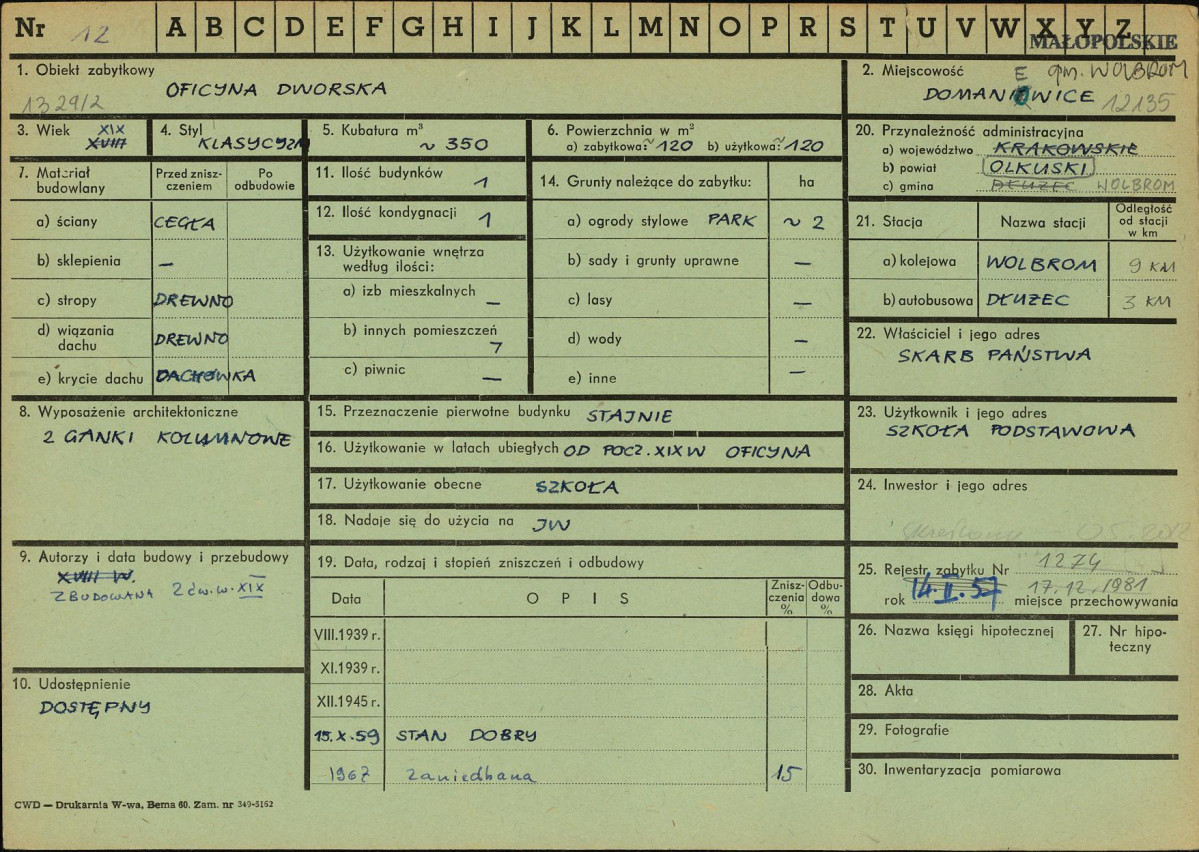 Nr 12 A B C D E F G H I J K L M N O P R S T U V W X Y Z
MAŁOPOLSKIE
1. Obiekt zabytkowy
OFICYNA DWORSKA
1329/2
2. Miejscowość gm. WOLBROM
E
DOMANIOWICE 12135
3. Wiek XIX
XVIII
4. Styl
KLASYCYZM
5. Kubatura m³
~ 350
6. Powierzchnia w m²
a) zabytkowa: ~120 b) użytkowa: ~120
7. Materiał budowlany
Przed zniszczeniem
Po odbudowie
a) ściany CEGŁA
b) sklepienia –
c) stropy DREWNO
d) wiązania dachu DREWNO
e) krycie dachu DACHÓWKA
8. Wyposażenie architektoniczne
2 GANKI KOLUMNOWE
9. Autorzy i data budowy i przebudowy
XVIII W.
ZBUDOWANA 2 ćw. w. XIX
10. Udostępnienie
DOSTĘPNY
11. Ilość budynków 1
12. Ilość kondygnacji 1
13. Użytkowanie wnętrza według ilości:
a) izb mieszkalnych –
b) innych pomieszczeń 7
c) piwnic –
14. Grunty należące do zabytku: ha
a) ogrody stylowe PARK ~ 2
b) sady i grunty uprawne –
c) lasy –
d) wody –
e) inne –
15. Przeznaczenie pierwotne budynku STAJNIE
16. Użytkowanie w latach ubiegłych OD POCZ. XIX W OFICYNA
17. Użytkowanie obecne SZKOŁA
18. Nadaje się do użycia na JW
19. Data, rodzaj i stopień zniszczeń i odbudowy
Data OPIS Zniszczenia % Odbudowa %
VIII.1939 r.
XI.1939 r.
XII.1945 r.
15.X.59 STAN DOBRY
1967 zaniedbana 15
20. Przynależność administracyjna
a) województwo KRAKOWSKIE
b) powiat OLKUSKI
c) gmina DŁUŻEC WOLBROM
21. Stacja Nazwa stacji Odległość od stacji w km
a) kolejowa WOLBROM 9 KM
b) autobusowa DŁUŻEC 3 KM
22. Właściciel i jego adres
SKARB PAŃSTWA
23. Użytkownik i jego adres
SZKOŁA PODSTAWOWA
24. Inwestor i jego adres
25. Rejestr zabytku Nr 1274
14.II.57 17.12.1981
rok miejsce przechowywania
26. Nazwa księgi hipotecznej
27. Nr hipoteczny
28. Akta
29. Fotografie
30. Inwentaryzacja pomiarowa
CWD — Drukarnia W-wa, Bema 60. Zam. nr 349-5162